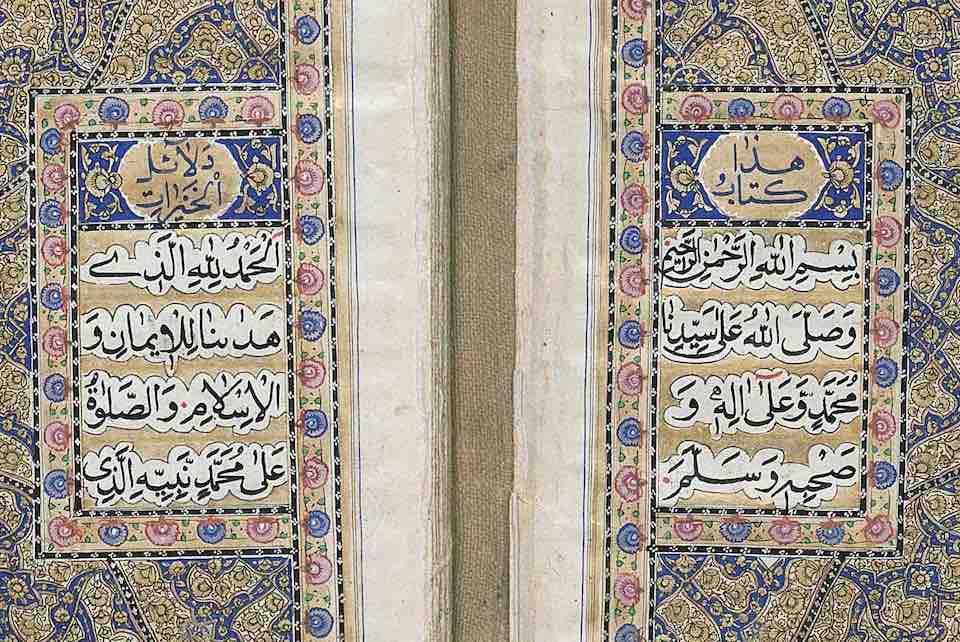 هذا
كتاب
بِسْمِ اللهِ الرَّحْمٰنِ الرَّحِيْمِ
وَصَلَّى اللهُ عَلٰى سَيِّدِنَا
مُحَمَّدٍ وَّعَلٰى اٰلِهٖ وَ
صَحْبِهٖ وَسَلَّمَ
دَلَائِلُ
الْخَيْرَاتِ
اَلْحَمْدُ لِلّٰهِ الَّذِے
هَدٰىنَا لِلْاِيْمَانِ وَ
الْاِسْلَامِ وَالصَّلٰوةُ
عَلٰى مُحَمَّدٍ نَبِيِّهِ الَّذِى